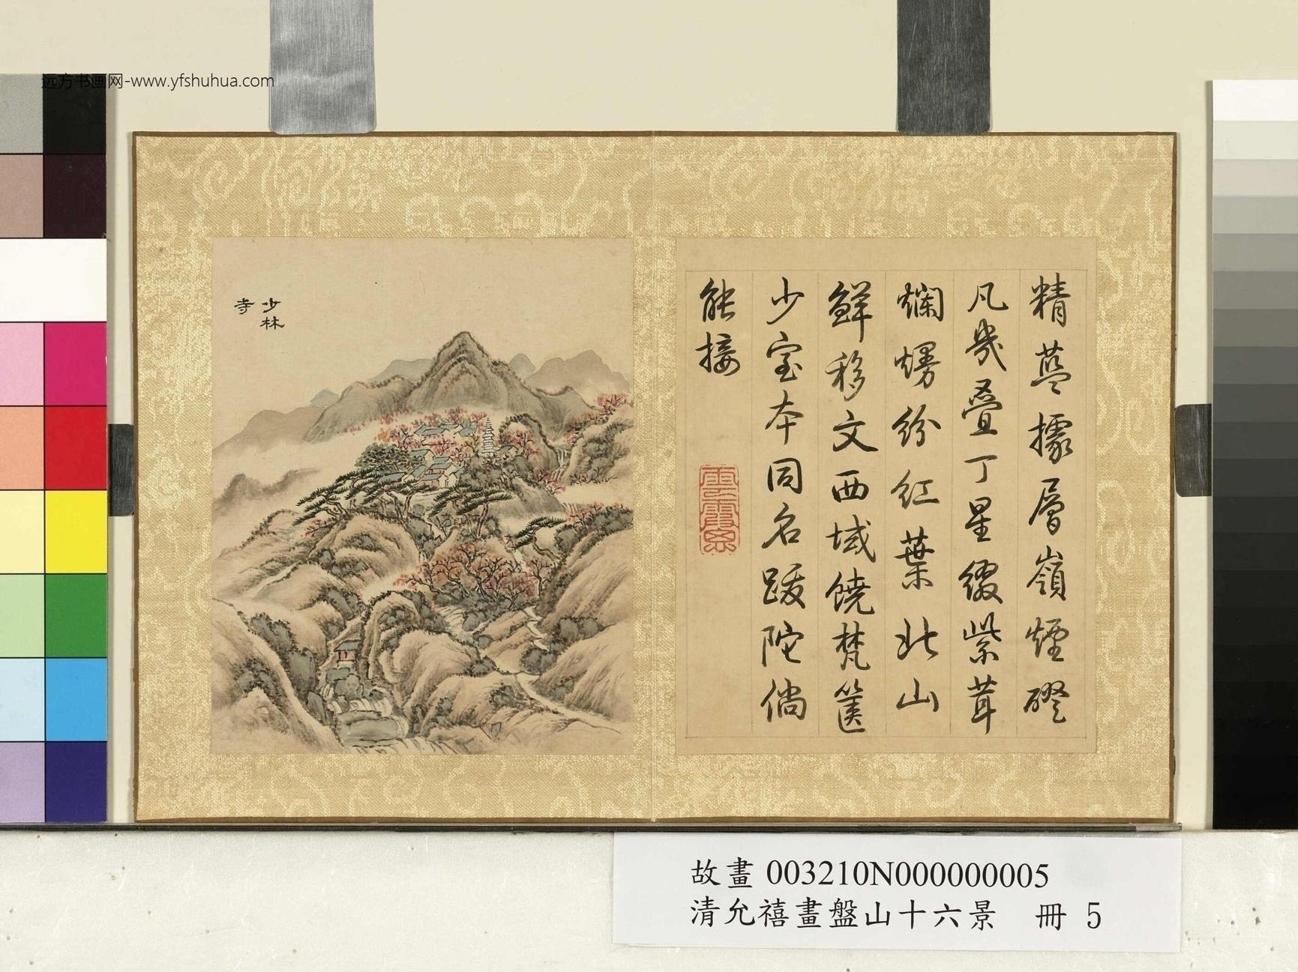 远方书画网-www.yfshuhua.com
少林
寺
精藍據層嶺煙磴
凡幾疊丁星綴紫茸
爛熳紛紅葉北山
鮮移文西域饒梵篋
少室本同名跋陀倘
能接
故畫 003210N000000005
清允禧畫盤山十六景 冊 5